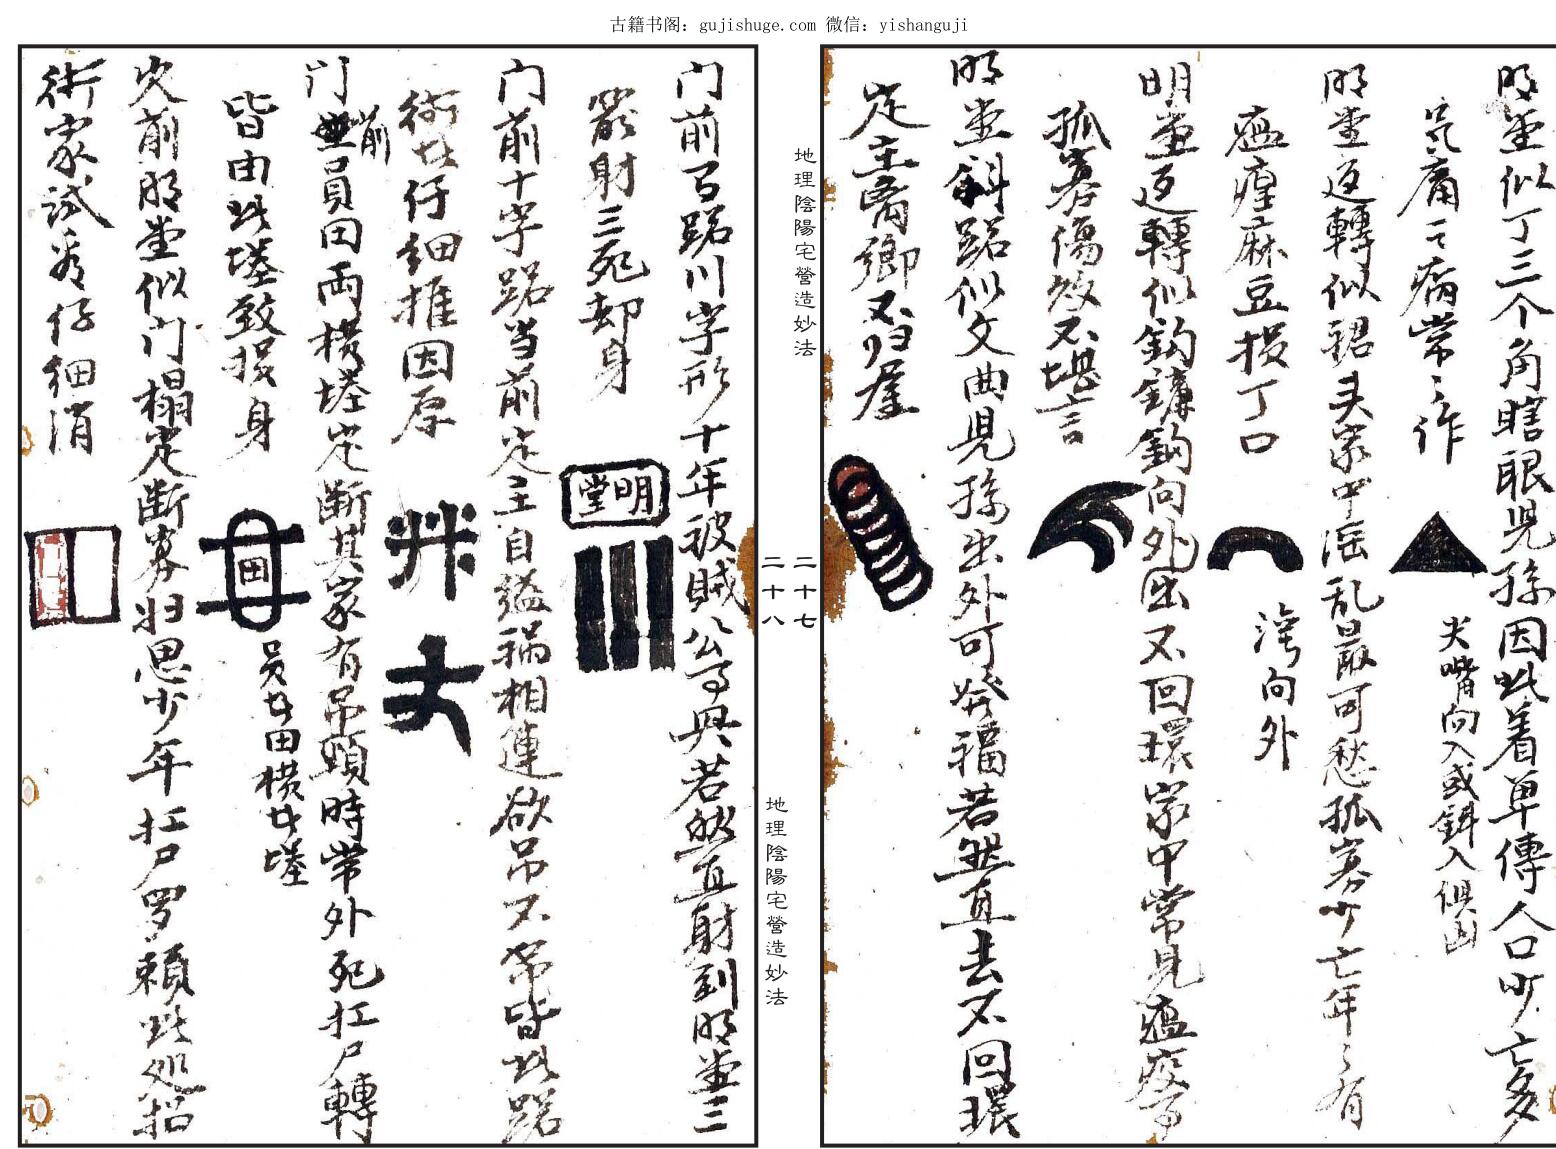 古籍书阁：gujishuge.com 微信：yishanguji
明堂似丁三个角瞎眼児孫因此着单傳人口少亡多
氣痛之病常〻作
尖嘴向入或斜入俱凶
明堂返轉似裙头家中淫乱最可愁孤寡少亡年〻有
瘟瘴麻豆損丁口
湾向外
明堂返轉似鈎鐮鈎向外出不回環家中常見瘟疫事
孤寡傷殘不堪言
明堂斜路似文曲児孫出外可発福若然直去不回環
定主离鄉不归屋
地理陰陽宅營造妙法
二十七
二十八
地理陰陽宅營造妙法
门前有路川字形十年被賊公事興若然直射到明堂三
箭射三死却身
明堂
门前十字路当前定主自縊禍相連欲吊不吊皆此路
術士仔細推因原
门前員田両横塘定断其家有吊頸時常外死扛尸轉
皆由此塘致損身
田
員女田横女塘
穴前明堂似门榻定断寡妇思少年扛尸罗賴此処招
術家試看仔細消